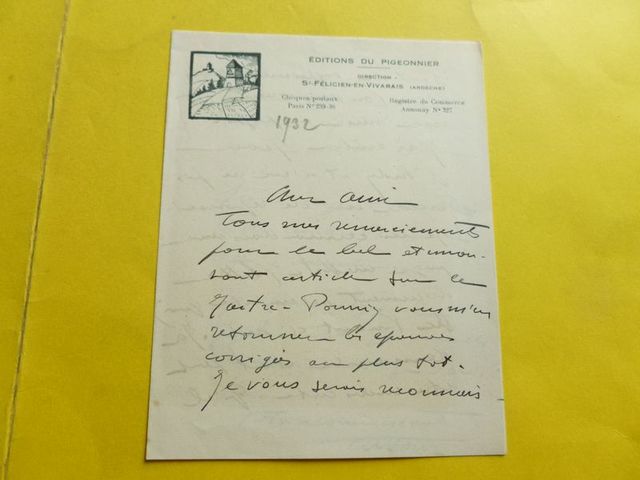 ÉDITIONS DU PIGEONNIER
DIRECTION
St-FÉLICIEN-EN-VIVARAIS (ARDÈCHE)
Chèques postaux
Paris N° 259-36
Registre du Commerce
Annonay N° 327
1932
Cher ami
Tous mes remerciements
pour le bel et amu-
sant article sur le
Pourriez vous m'en
retourner les épreuves
corrigées au plus tôt.
Je vous serais reconnais-